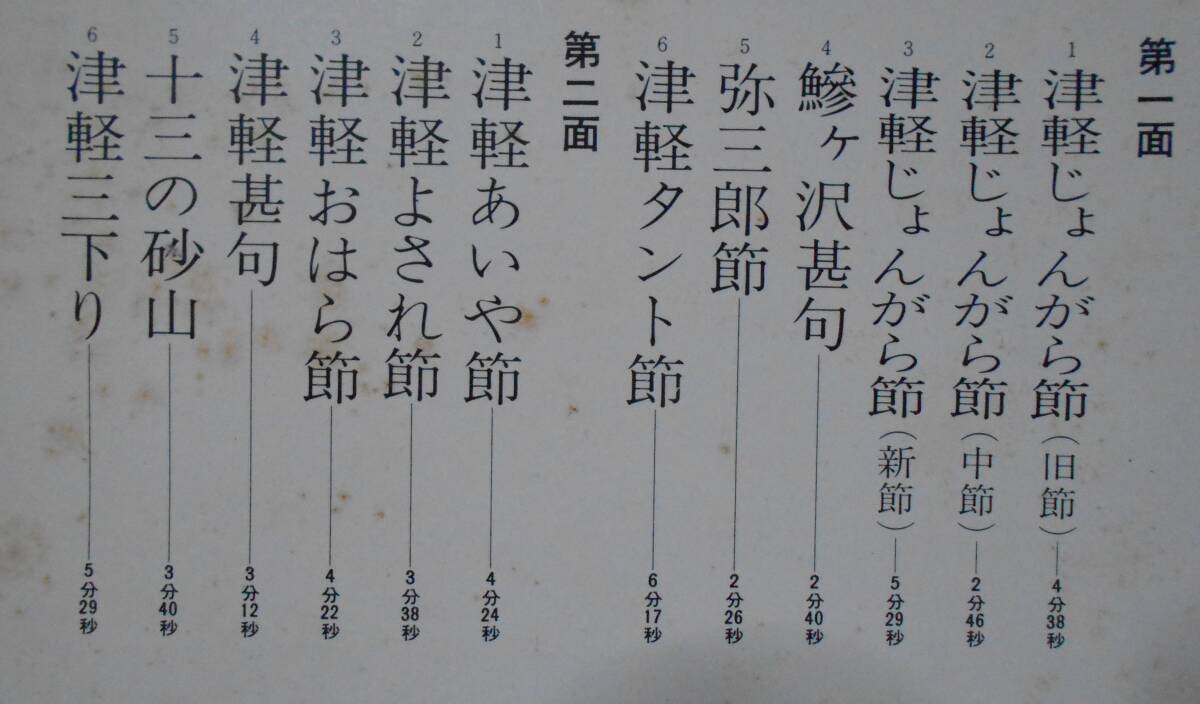 第一面
1 津軽じょんがら節（旧節）―4分38秒
2 津軽じょんがら節（中節）―2分46秒
3 津軽じょんがら節（新節）―5分29秒
4 鰺ヶ沢甚句―2分40秒
5 弥三郎節―2分26秒
6 津軽タント節―6分17秒
第二面
1 津軽あいや節―4分24秒
2 津軽よされ節―3分38秒
3 津軽おはら節―4分22秒
4 津軽甚句―3分12秒
5 十三の砂山―3分40秒
6 津軽三下り―5分29秒